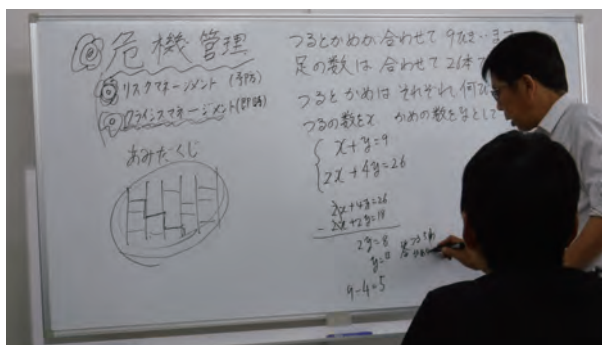 ◎危機管理
◎リスクマネージメント(予防)
◎クライシスマネージメント(即時)
あみだくじ
つるとかめが合わせて9ひきいます
足の数は合わせて26本で
つるとかめはそれぞれ何び
つるの数をx かめの数をyとして
x+y=9
2x+4y=26
2x+4y=26
-2x+2y=18
2y=8
y=4
9-4=5